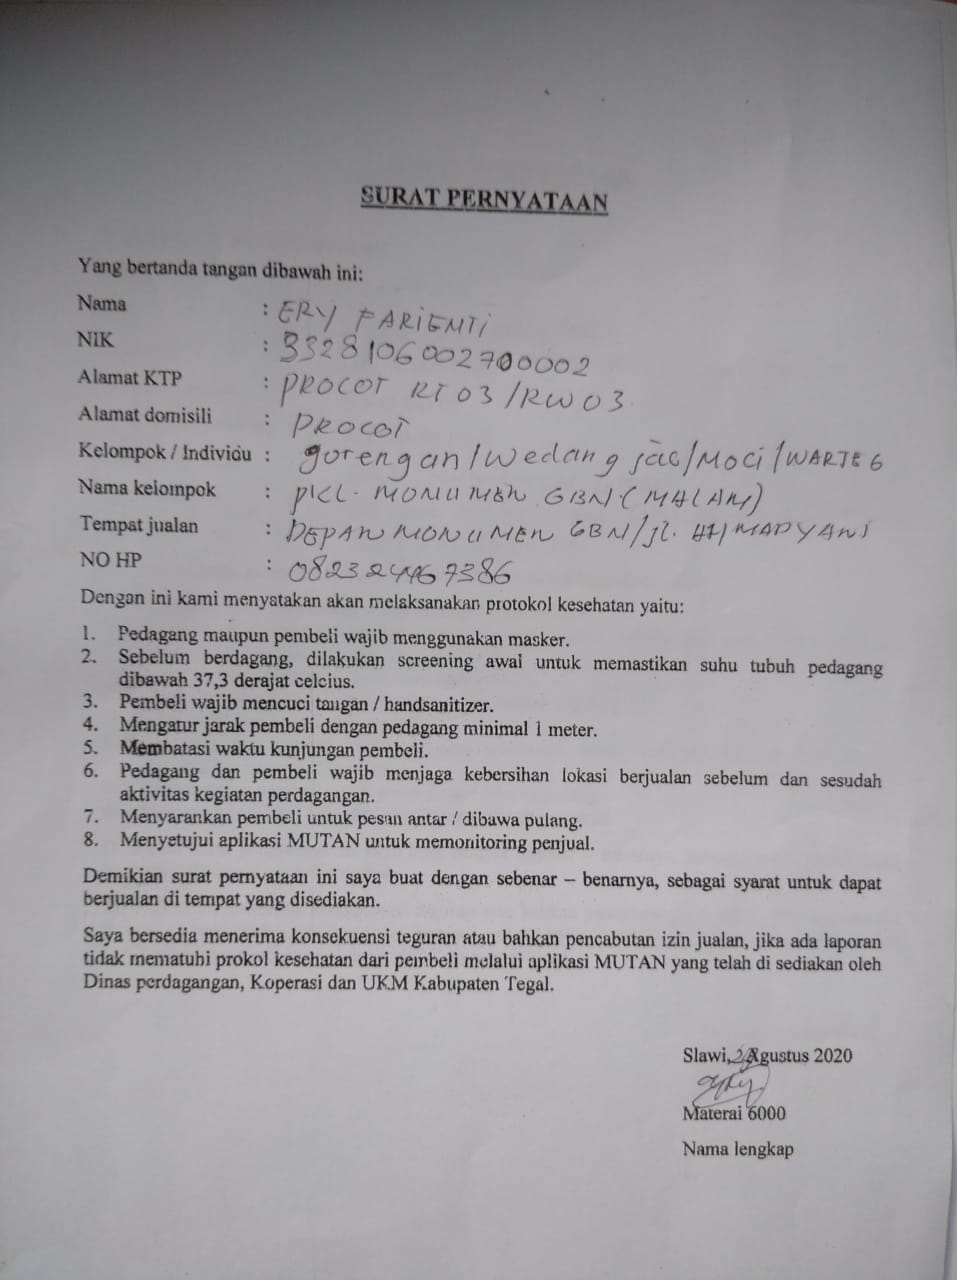 SURAT PERNYATAAN
Yang bertanda tangan dibawah ini:
Nama : ERY PARIENTI
NIK : 3328106002700002
Alamat KTP : PROCOT RT 03 /RW 03
Alamat domisili : PROCOT
Kelompok / Individu : gorengan/wedang jae/Moci/WARTEG
Nama kelompok : PKL. MONUMEN GBN (MALAM)
Tempat jualan : DEPAN MONUMEN GBN/Jl.
NO HP :
Dengan ini kami menyatakan akan melaksanakan protokol kesehatan yaitu:
1. Pedagang maupun pembeli wajib menggunakan masker.
2. Sebelum berdagang, dilakukan screening awal untuk memastikan suhu tubuh pedagang
dibawah 37,3 derajat celcius.
3. Pembeli wajib mencuci tangan / handsanitizer.
4. Mengatur jarak pembeli dengan pedagang minimal 1 meter.
5. Membatasi waktu kunjungan pembeli.
6. Pedagang dan pembeli wajib menjaga kebersihan lokasi berjualan sebelum dan sesudah
aktivitas kegiatan perdagangan.
7. Menyarankan pembeli untuk pesan antar / dibawa pulang.
8. Menyetujui aplikasi MUTAN untuk memonitoring penjual.
Demikian surat pernyataan ini saya buat dengan sebenar – benarnya, sebagai syarat untuk dapat
berjualan di tempat yang disediakan.
Saya bersedia menerima konsekuensi teguran atau bahkan pencabutan izin jualan, jika ada laporan
tidak mematuhi prokol kesehatan dari pembeli melalui aplikasi MUTAN yang telah di sediakan oleh
Dinas perdagangan, Koperasi dan UKM Kabupaten Tegal.
Slawi, Agustus 2020
Materai 6000
Nama lengkap